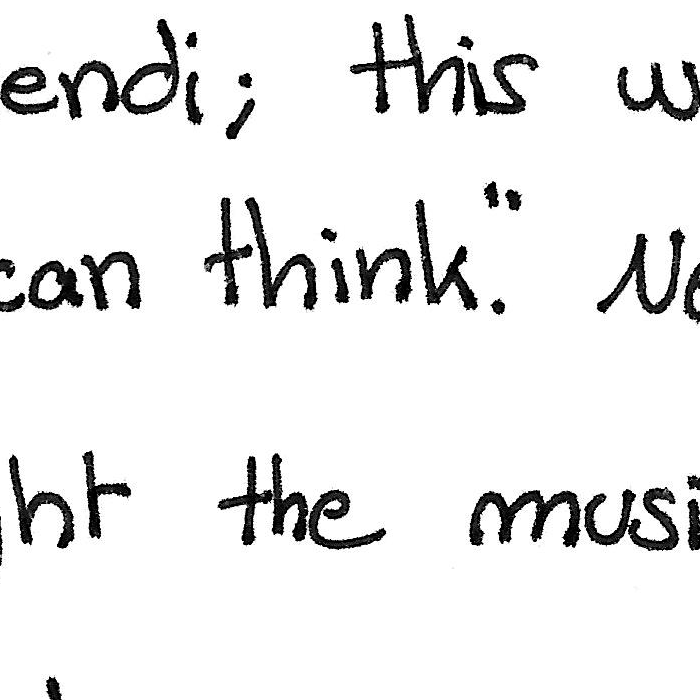 endi; this w
can think." No
ght the musi